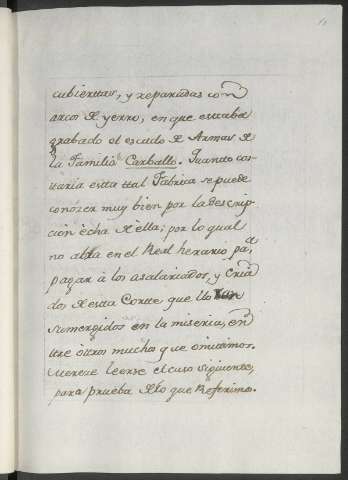 cubierttas, y reparadas con
arcos de yerro, en que estaba
grabado el escudo de Armas de
la Familia Carballo. Quanto cos-
taria estta ttal Fabrica se puede
conozer muy bien por la descrip-
cion écha de ella; por lo qual
no abia en el Real herario pa,ª
pagar à los asalariados, y cria-
dos de esta Corte que
sumergidos en la miseria, en
ttre ótros muchos que omitimos.
Merece leerse el caso siguiente,
para prueba de lo que Referimos.